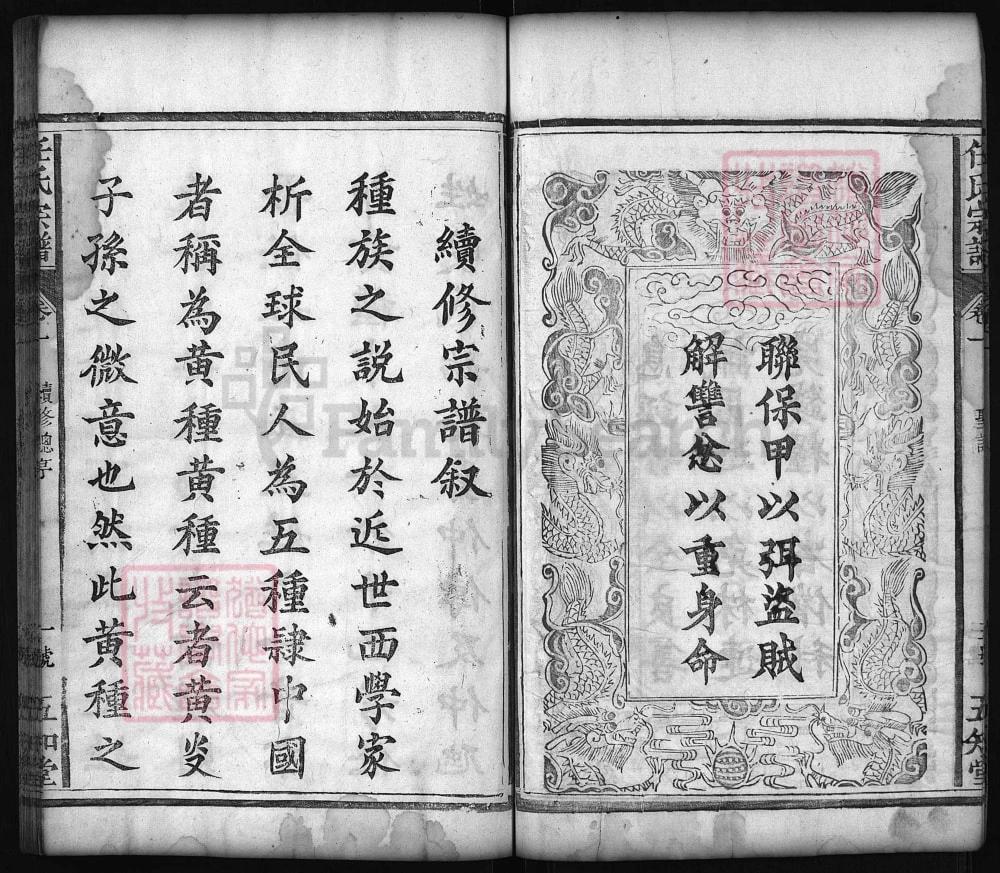 任氏宗譜
卷一
聖訓
五知堂
聯保甲以弭盜賊
解讐忿以重身命
續修宗譜叙
種族之說始於近世西學家
析全球民人為五種隷中國
者稱為黃種黃種云者黃炎
子孫之微意也然此黃種之
任氏宗譜
卷一
續修總序
一號
五知堂